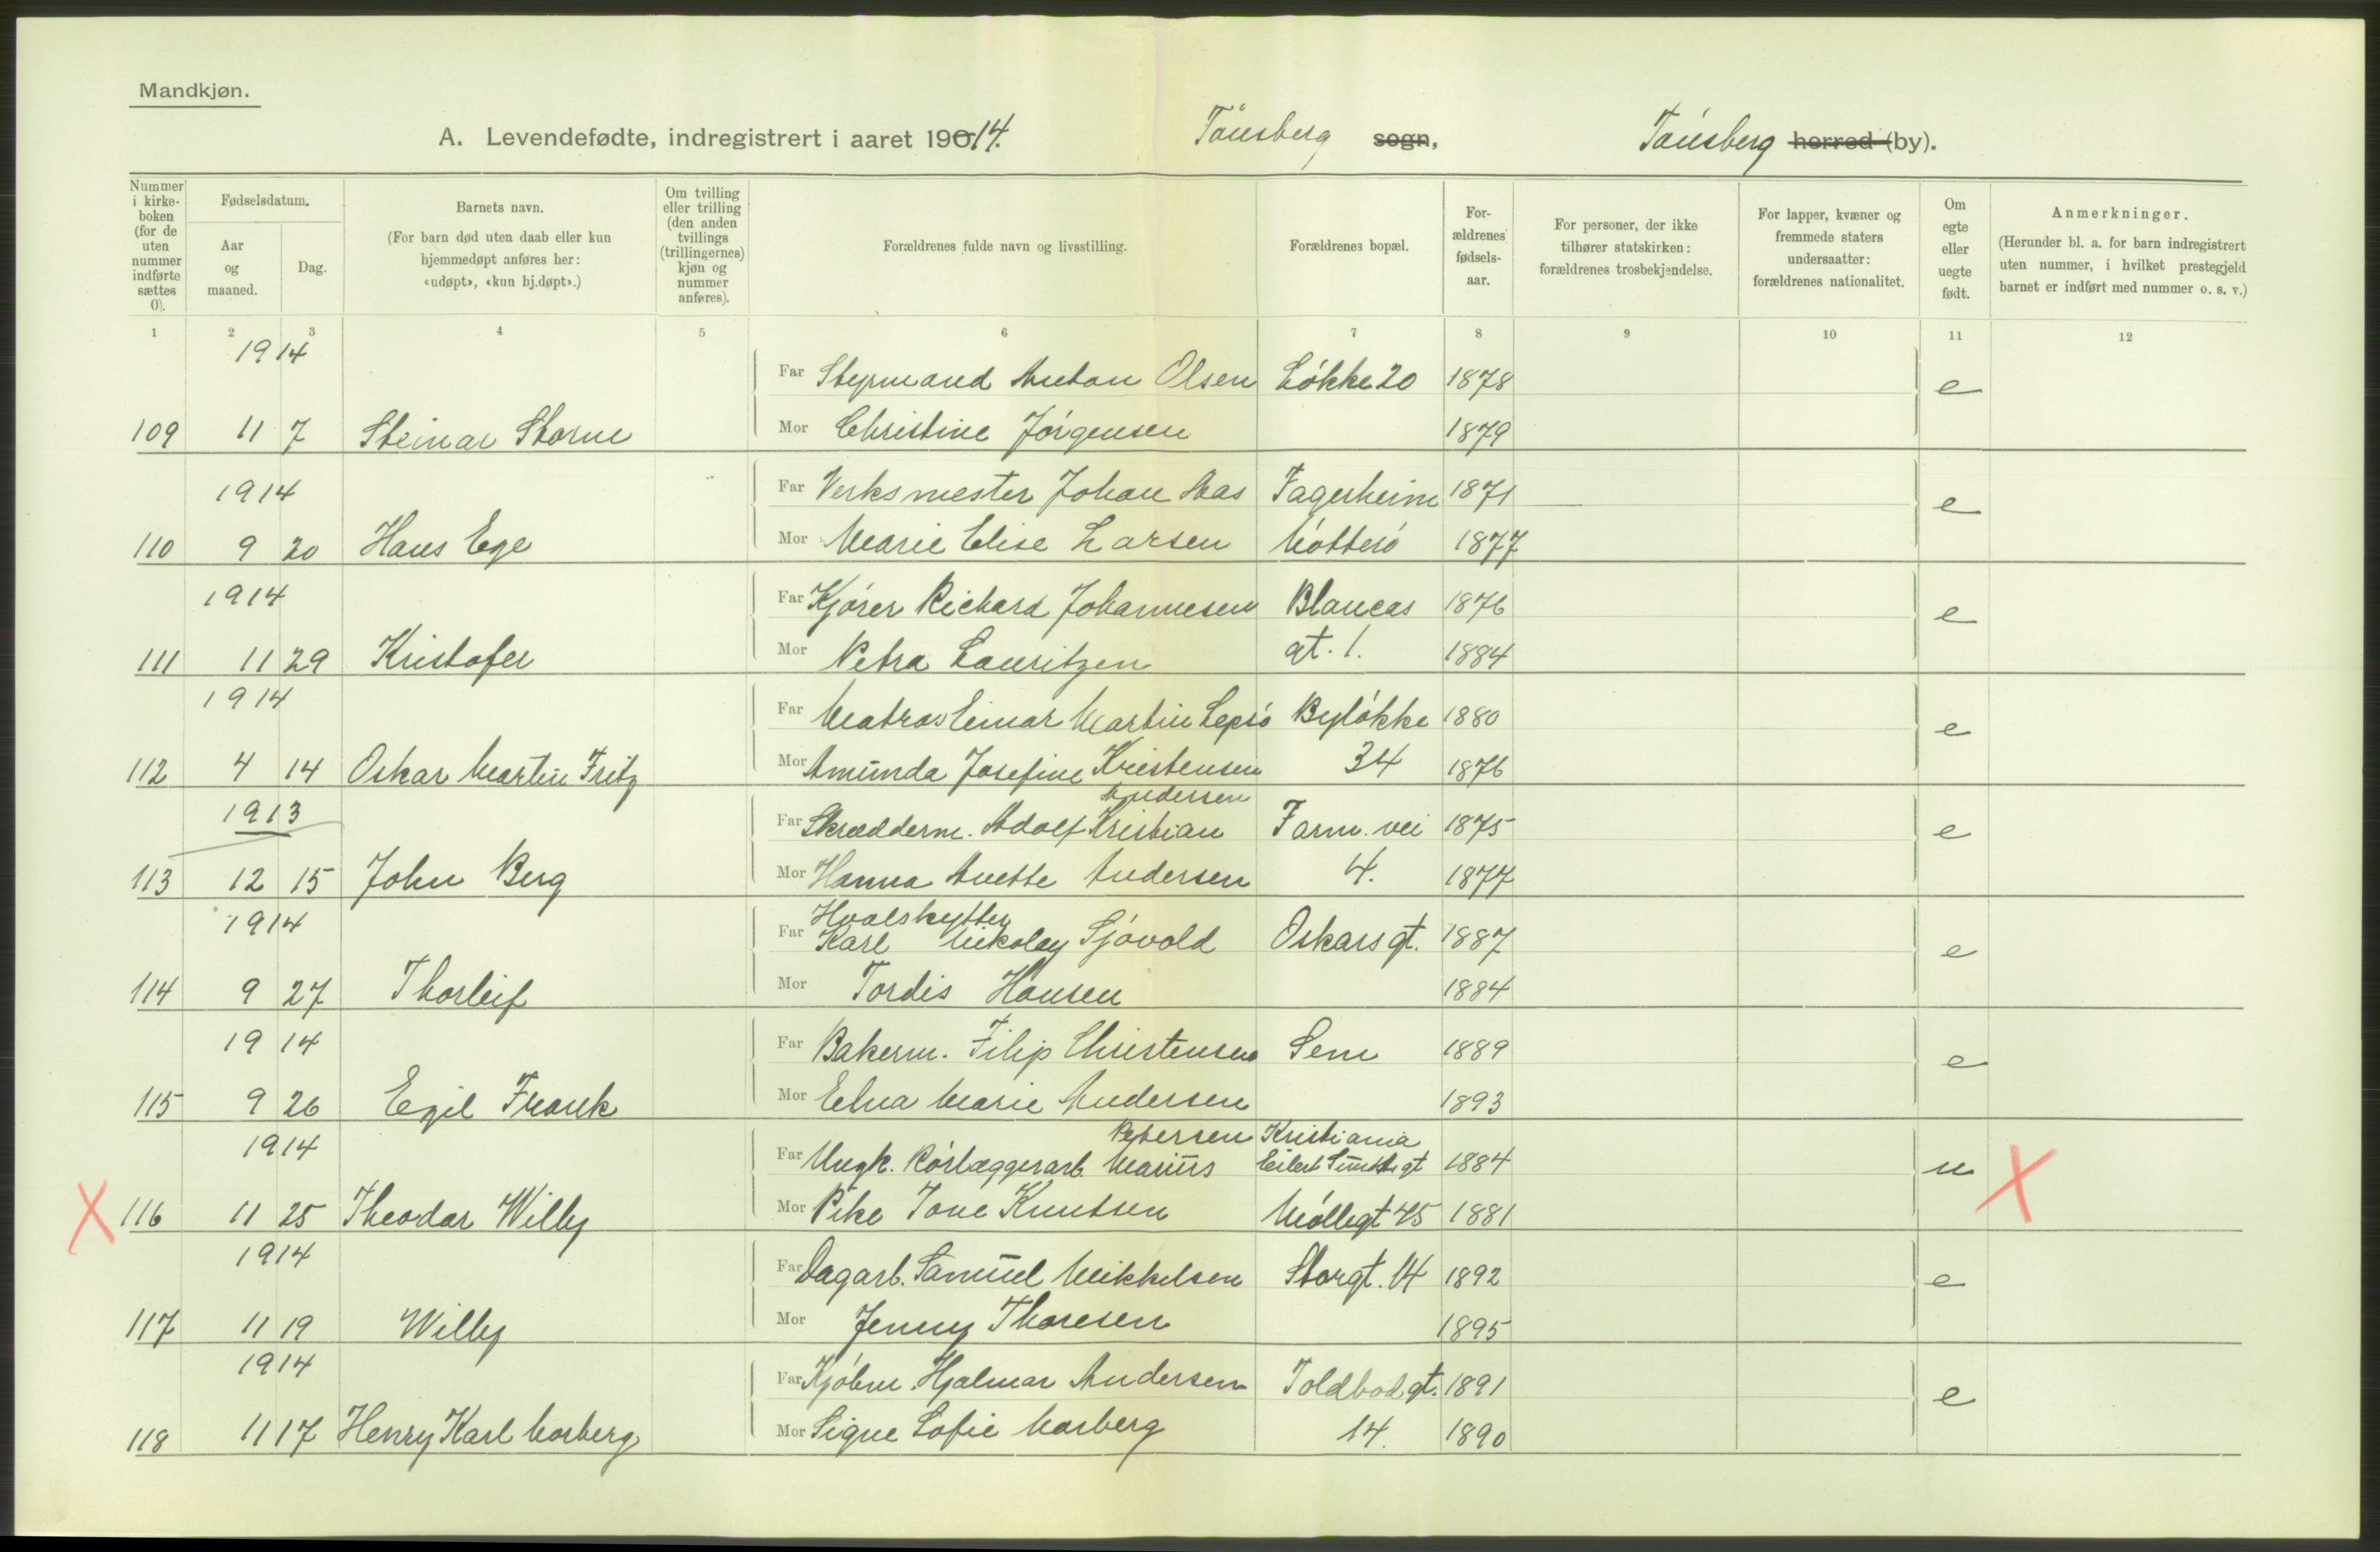 Mandkjøn.
A. Levendefødte, indregistrert i aaret 19014. Tønsberg sogn, Tønsberg herred (by).
Nummer i kirkeboken (for de uten nummer indførte sættes 0).
Fødselsdatum.
Aar og maaned.
Dag.
Barnets navn.
(For barn død uten daab eller kun hjemmedøpt anføres her: «udøpt», «kun hj.døpt».)
Om tvilling eller trilling (den anden tvillings (trillingernes) kjøn og nummer anføres).
Forældrenes fulde navn og livsstilling.
Forældrenes bopæl.
Forældrenes fødselsaar.
For personer, der ikke tilhører statskirken: forældrenes trosbekjendelse.
For lapper, kvæner og fremmede staters undersaatter: forældrenes nationalitet.
Om egte eller uegte født.
Anmerkninger.
(Herunder bl. a. for barn indregistrert uten nummer, i hvilket prestegjeld barnet er indført med nummer o. s. v.)
1 2 3 4 5 6 7 8 9 10 11 12
1914
Far Styrmand Anton Olsen Løkke 20 1878 e
109 11 7 Steinar Storm Mor Christine Jørgensen 1879
1914 Far Verksmester Johan Aas Fagerheim 1871 e
110 9 20 Hans Ege Mor Marie Elise Larsen Nøtterø 1877
1914 Far Kjører Richard Johannesen Blancas 1876 e
111 11 29 Kristofer Mor Petra Lauritzen gt. 1. 1884
1914 Far Matros Einar Martin Lepsø Byløkke 1880 e
112 4 14 Oskar Martin Fritz Mor Amunda Josefine Kristensen 34 1876
Andersen
1913 Far Skrædderm. Adolf Kristian Farm. vei 1875 e
113 12 15 John Berg Mor Hanna Anette Andersen 4. 1877
Hvalskytter
1914 Far Karl Nikolay Sjøvold Oskarsgt. 1887 e
114 9 27 Thorleif Mor Tordis Hansen 1884
1914 Far Bakerm. Filip Christensen Sem 1889 e
115 9 26 Egil Frank Mor Edna Marie Andersen 1893
Petersen Kristiania
1914 Far Ungk. Rørlæggerarb. Marius Eilert Sundts gt 1884 u X
X 116 11 25 Theodor Willy Mor Pike Tone Knutsen Møllegt 45 1881
1914 Far Dagarb. Samuel Mikkelsen Storgt. 14 1892 e
117 11 19 Willy Mor Jenny Thoresen 1895
1914 Far Kjøbm. Hjalmar Andersen Toldbodgt. 1891 e
118 11 17 Henry Karl Norberg Mor Signe Sofie Norberg 14. 1890